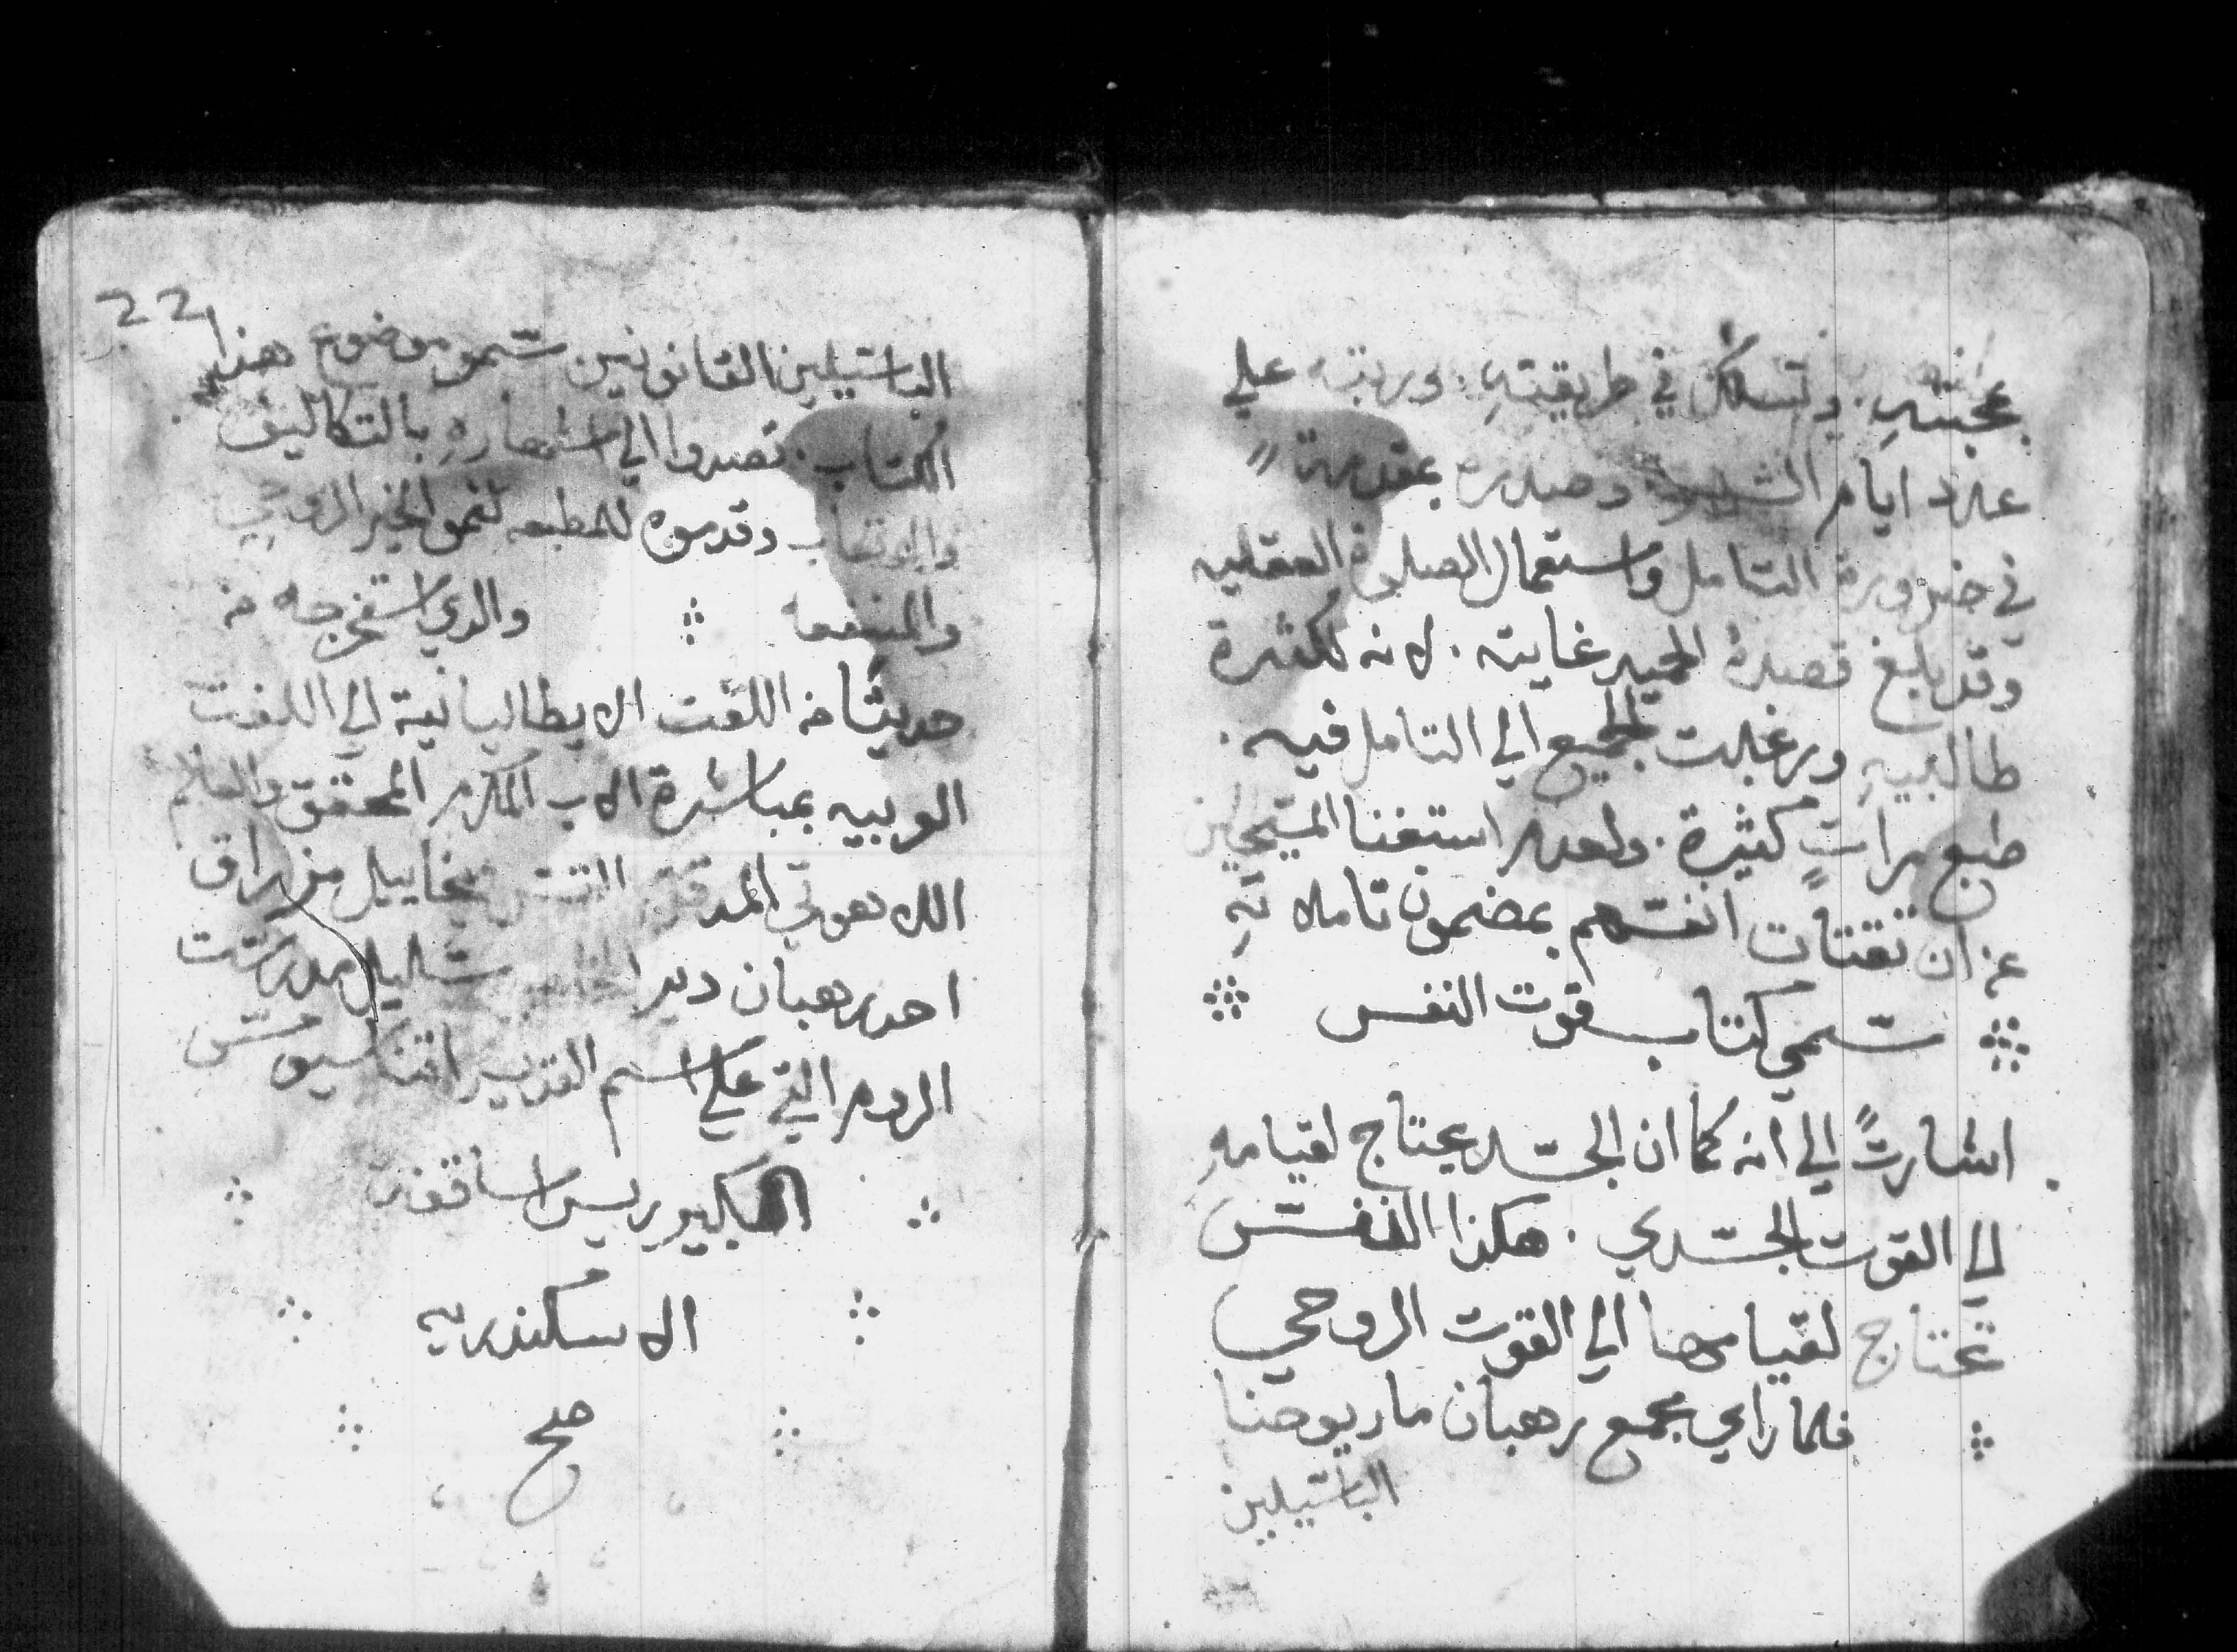 بمحبتهِ. وتسلك في طريقيتهِ. ورتبه علي
عدد ايام الشهر وصدره بمقدمة
في ضرورة التامل واستعمال الصلوة العقليه
وقد بلغ قصدهُ الحميد غايته. لانه لكثرة
طالبيهِ ورغبت الجميع الي التامل فيه.
طبع مراتٍ كثيرة. ولعدم استغنا المسيحيين
عن ان تقتات انفسهم بمضمون تاملاته
سمي كتاب قوت النفس
اشارتً الي انه كما ان الجسد يحتاج لقيامهِ
الي القوت الجسدي. هكذا النفس
تحتاج لقيامها الي القوت الروحي
فلما راي مجمع رهبان مار يوحنا
الباسيليين
22
الباسيليين القانونيين سمو موضوع هذا
الكتاب. تصدوا الي اشهارهِ بالتكاليف
والاتعاب وقدموه للمطبعه لنمو الخير الروحي
والمنفعه والدي استخرجه من
حديثا من اللغت الايطاليانية الي اللغت
العربيه بمباشرة الاب المكرم المحقق والعالم
اللاهوتي المدقق القس ميخاييل من عراق
احد رهبان دير المخلص تلميذ مدرست
الروم التي علي اسم القديس اتناسيوس
الكبير ريس اساقفة
الاسكندريه
صح